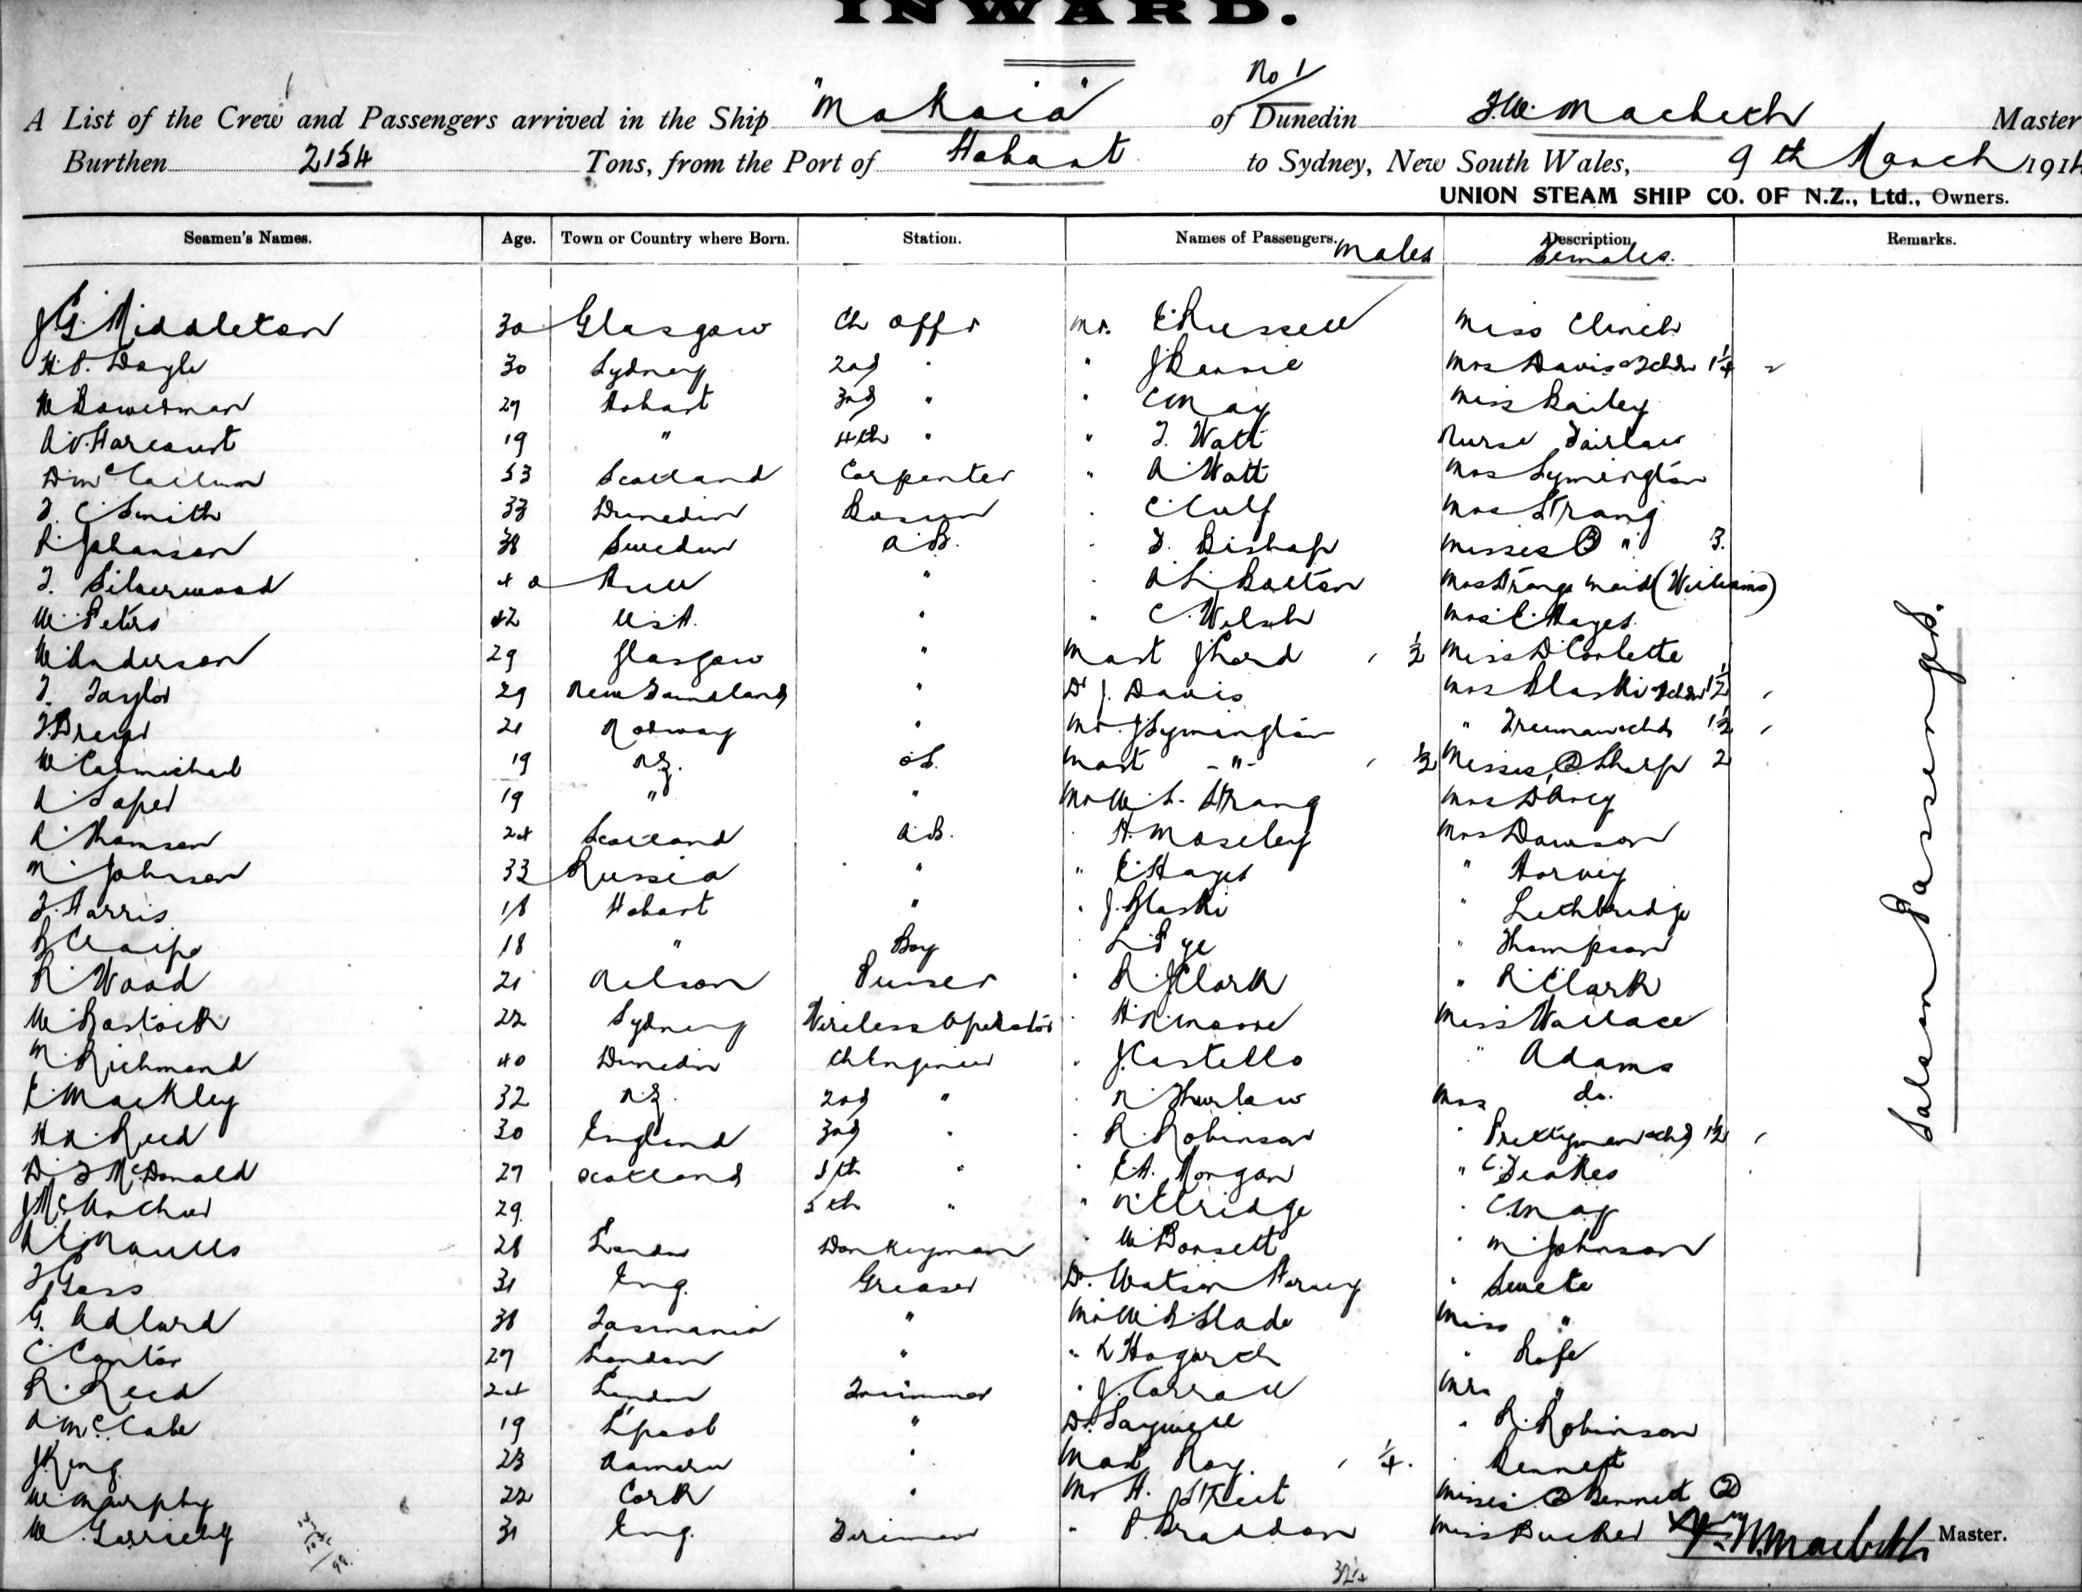 INWARD.
No 1
A List of the Crew and Passengers arrived in the Ship "Mokoia" of Dunedin T.W. Macbeth Master
Burthen 2154 Tons, from the Port of Hobart to Sydney, New South Wales, 9th March 1914
UNION STEAM SHIP CO. OF N.Z., Ltd., Owners.
Seamen's Names. Age. Town or Country where Born. Station. Names of Passengers. Males Description Females. Remarks.
J.G. Middleton 30 Glasgow Ch Offr Mr. E. Russell Miss Clinch
H.P. Doyle 30 Sydney 2nd " " J. Mrs Davis & 1 1/4
W Bowerman 27 Hobart 3rd " " C May Miss Bailey
A.V. Harcourt 19 " 4th " " T. Watt Nurse Fairlaw
D McCallum 53 Scotland Carpenter " A. Watt Mrs Symington
T. C. Smith 33 Dunedin Bosun " C Mrs Strang
R. Johanson 38 Sweden A.B. " T. Bishop Misses 3 " 3.
T. Silverwood 40 Hull " " A.L. Bolton Mrs Strangs maid (Williams)
W. Peters 42 U.S.A. " " C. Welsh Mrs E. Hayes
W. Anderson 29 Glasgow " Mast J Lord 1/2 Miss D Corlette
T. Taylor 29 Newfoundland " Dr J. Davis Mrs Glaski & 1 1/2
21 Norway " Mr J. Symington " Freeman & chd 1 1/2
W Carmichael 19 N.Z. O.S. Mast " 1/2 Misses 2 Sharp 2
A Soper 19 " " Mr W. L. Strang Mrs
R. Thomson 24 Scotland A.B. " H. Moseley Mrs Dawson
N. Johnson 33 Russia " " E. Hayes " Harvey
T. Harris 18 Hobart " " J. Glaski " Lethbridge
18 " Boy " L. Pye " Thompson
R. Wood 21 Nelson Purser " R. J Clark " R Clark
W. Bostock 22 Sydney Wireless Operator " H. R. Moore Miss Wallace
N. Richmond 40 Dunedin Ch Engineer " J. Costello " Adams
E. Mackley 32 N.Z. 2nd " " N. Thurlow Mrs do.
H. A. Reed 30 England 3rd " " R. Robinson " Prettyman & chd 1 1/2
D. F McDonald 27 Scotland 4th " " E.A. Morgan " C. Jeakes
J McArthur 29 5th " " N. Elridge " C. May
28 London Donkeyman " W Dorsett " M. Johnson
T Gass 31 Eng. Greaser Dr. Watson Harvey "
G. Adlard 38 Tasmania " Mr W. S. Slade Miss "
C. Cantor 27 London " " L Hogarth " Rofe
R. Reed 24 London Trimmer " J. Carroll Mrs "
A. McCabe 19 L'pool " Dr. Saywell " R. Robinson
J King 23 " Mast Roy. 1/4. " Bennett
W. Murphy 22 Cork " Mr H. Street Misses 2 Bennett 2
W. 31 Eng. Fireman " P. Braddon Miss
Saloon Passengers.
T. W. Macbeth Master.